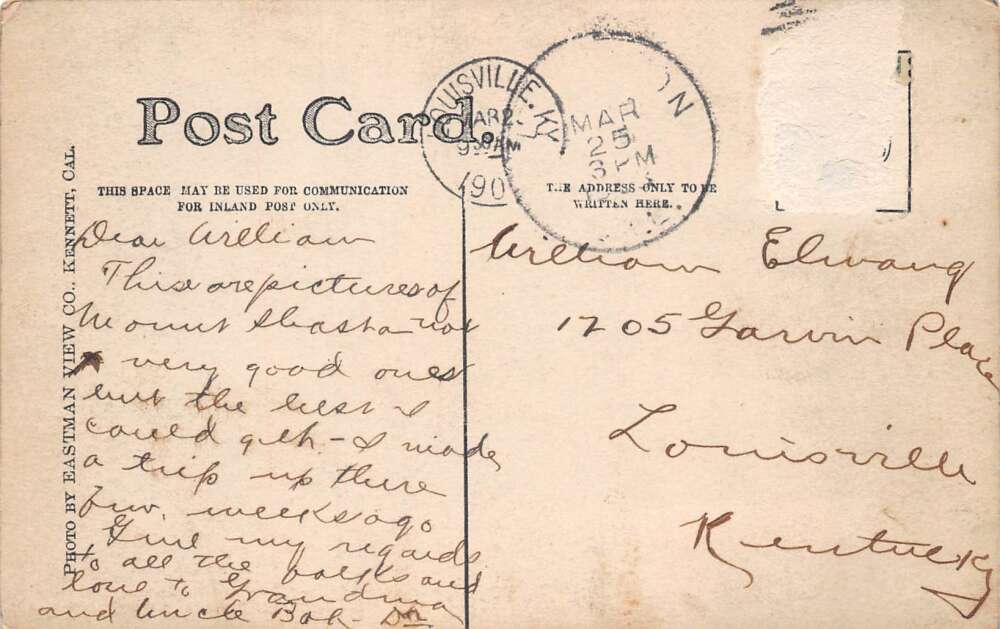 Post Card.
LOUISVILLE, KY.
MAR 2
9 AM
190
ON
MAR
25
3 PM
THIS SPACE MAY BE USED FOR COMMUNICATION
FOR INLAND POST ONLY.
THE ADDRESS ONLY TO BE
WRITTEN HERE.
PHOTO BY EASTMAN VIEW CO., KENNETT, CAL.
Dear William
These are pictures of
Mount Shasta - not
very good ones
but the best I
could get - I made
a trip up there
few weeks ago
Give my regards
to all the folks and
love to Grandma
and Uncle Bob -
William Elwang
1205 Garvin Place
Louisville
Kentucky